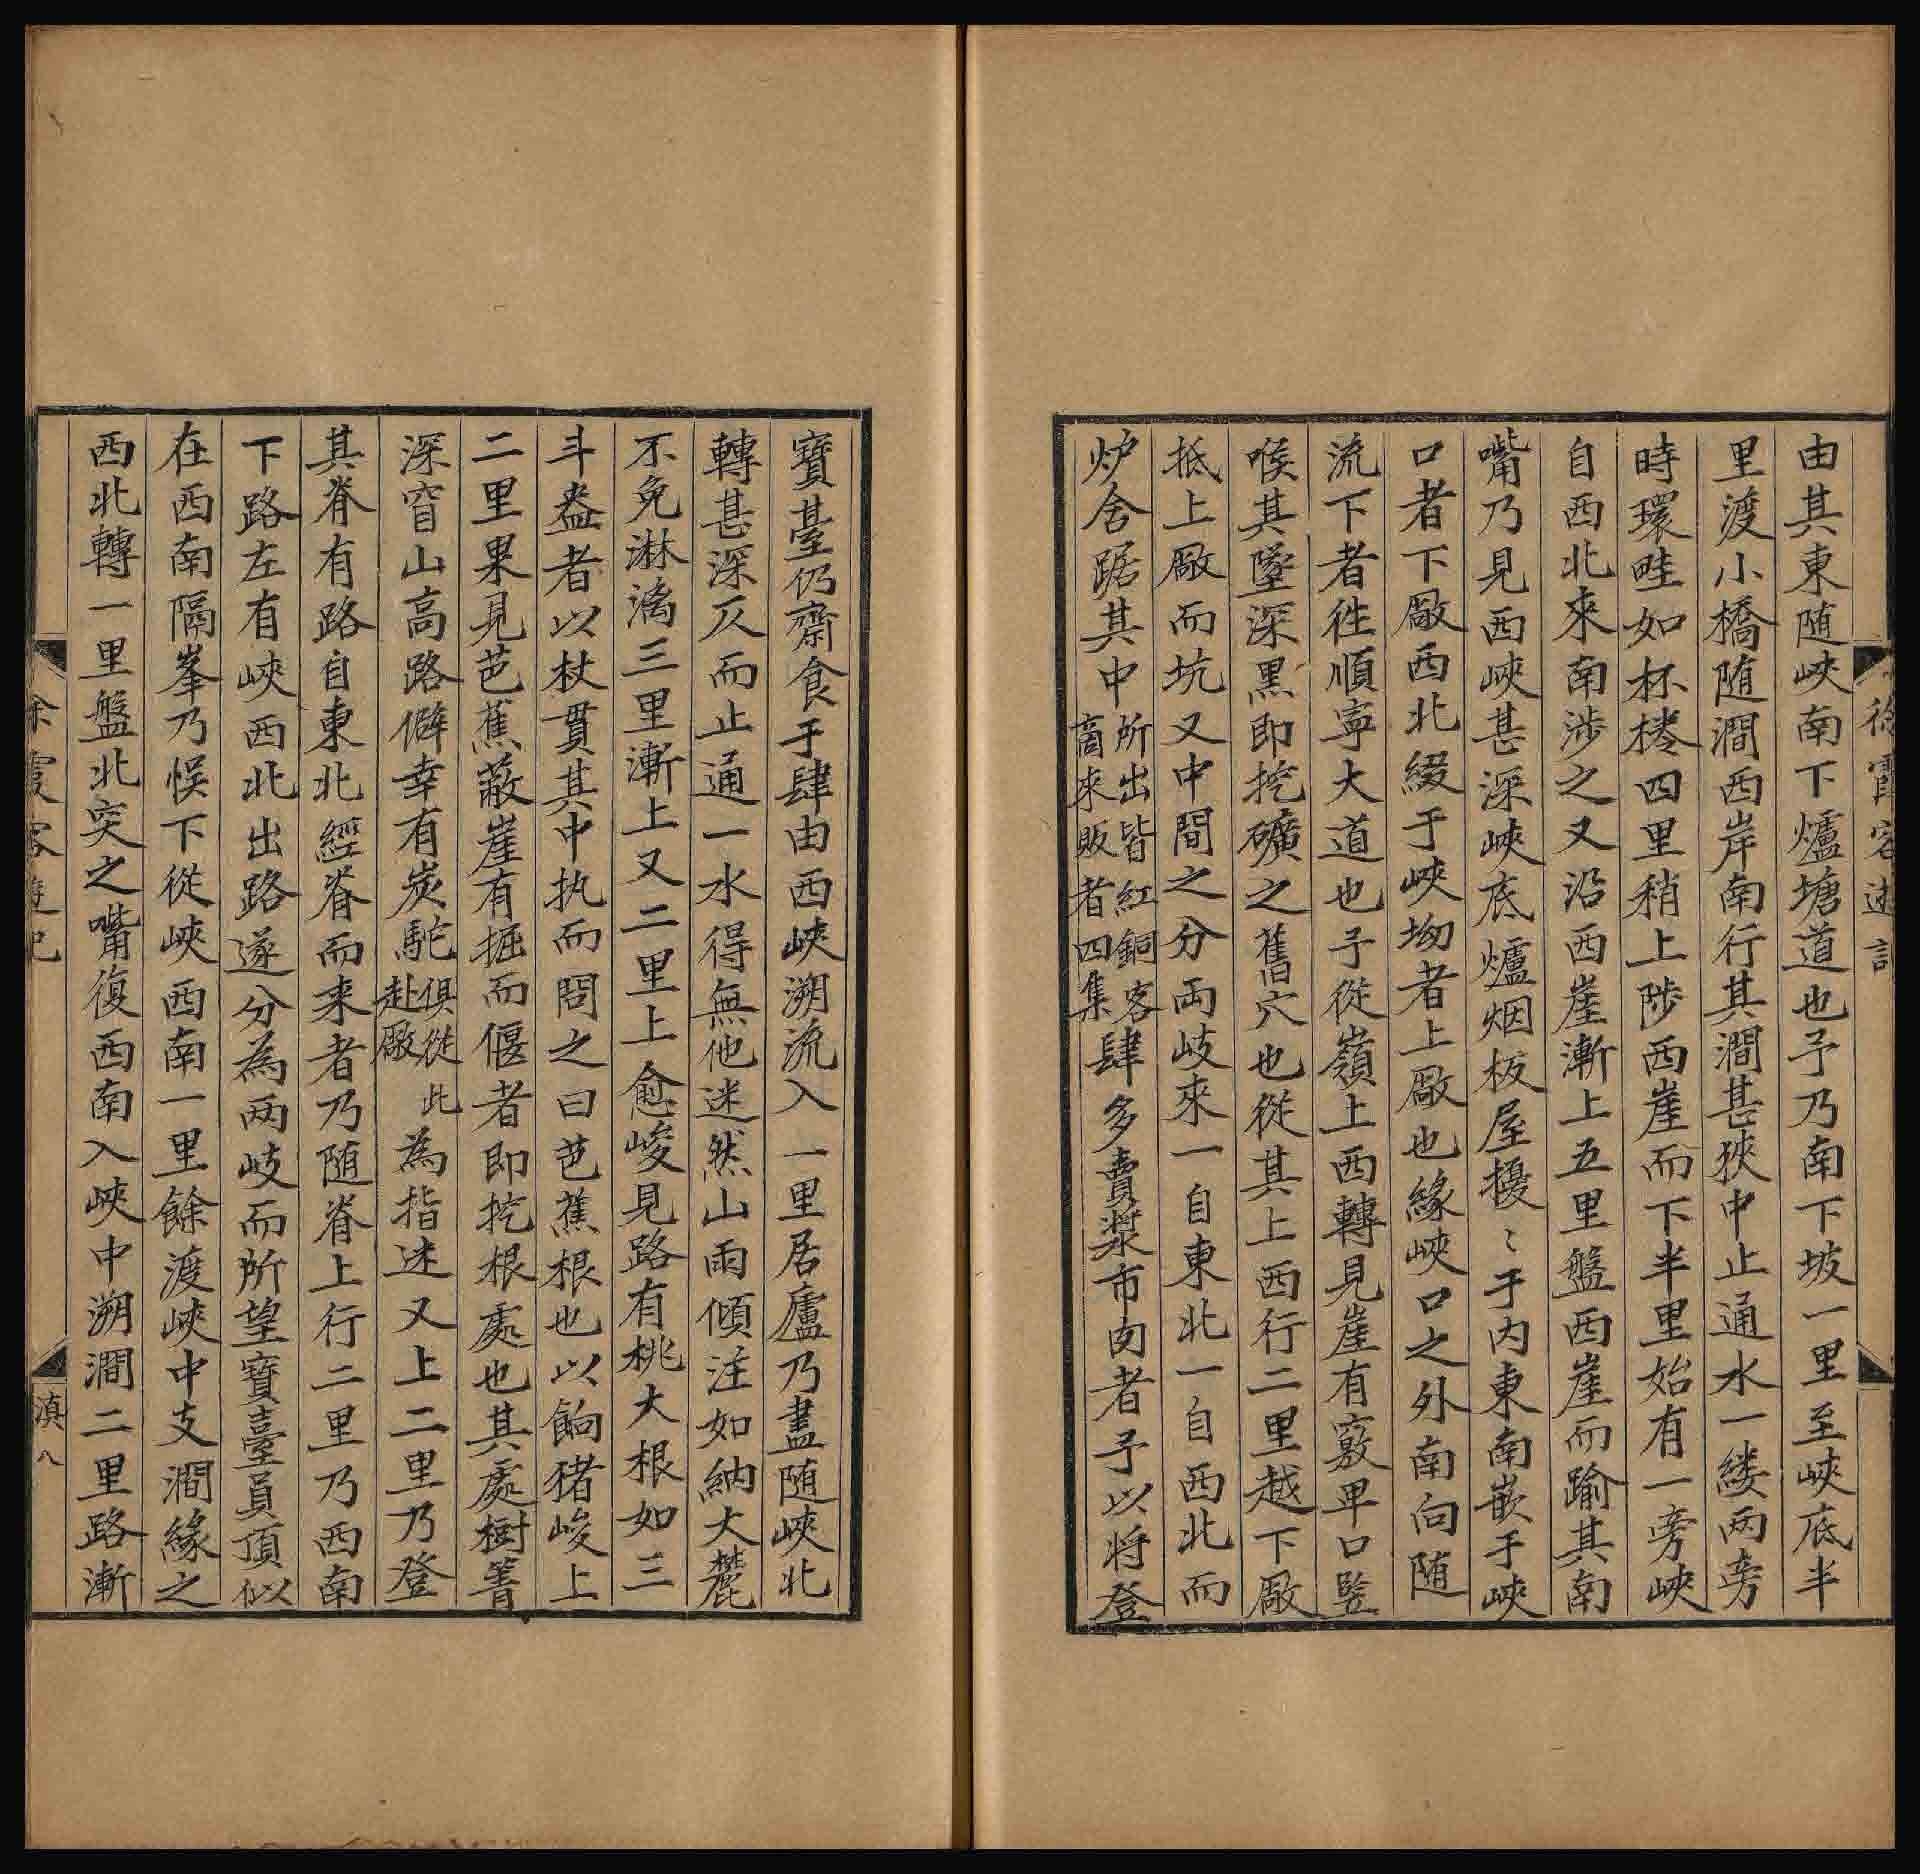 徐霞客遊記
由其東随峽南下爐塘道也予乃南下坡一里至峽底半
里渡小橋随澗西岸南行其澗甚狹中止通水一縷兩旁
時環畦如杯棬四里稍上陟西崖而下半里始有一旁峽
自西北來南涉之又沿西崖漸上五里盤西崖而踰其南
嘴乃見西峽甚深峽底爐烟板屋擾〻于内東南嵌于峽
口者下厰西北綴于峽坳者上厰也緣峽口之外南向随
流下者徃順寧大道也予從嶺上西轉見崖有竅卑口竪
喉其墜深黒即挖礦之舊穴也從其上西行二里越下厰
抵上厰而坑又中間之分両岐來一自東北一自西北而
炉舍踞其中所出皆紅銅客商來販者四集肆多賣漿市肉者予以將登
寶臺仍齋食于肆由西峽溯流入一里居廬乃盡随峽北
轉甚深仄而止通一水得無他迷然山雨傾注如納大麓
不免淋漓三里漸上又二里上愈峻見路有桃大根如三
斗盎者以杖貫其中执而問之曰芭蕉根也以餉猪峻上
二里果見芭蕉蔽崖有掘而偃者即挖根處也其處樹箐
深窅山高路僻幸有炭駝俱從此赴厰為指迷又上二里乃登
其脊有路自東北經脊而来者乃随脊上行二里乃西南
下路左有峽西北出路遂分為兩岐而所望寶臺員頂似
在西南隔峯乃悮下從峽西南一里餘渡峽中支澗緣之
西北轉一里盤北突之嘴復西南入峽中溯澗二里路漸
徐霞客遊記
滇八